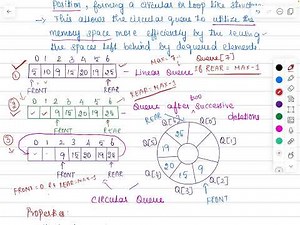 position, forming a circular or loop like structure
→ This allows the circular queue to utilize the
memory space more efficiently by the reusing
the spaces left behind by dequeued elements
0 1 2 3 4 5 6
MAX-1
Queue[7]
5 10 9 15 20 19 25
Linear Queue
If REAR = MAX-1
FRONT
REAR
REAR = MAX-1
2
0 1 2 3 4 5 6
- - 9 15 20 19 25
Queue after two successive
deletions
FRONT
REAR
REAR
Q[6]
Q[0]
3
0 1 2 3 4 5 6
- - 9 15 20 19 25
Q[5]
25
19
Q[1]
20
15
9
FRONT
REAR
Q[4]
Q[3]
Q[2]
FRONT
FRONT = 0 & REAR = MAX-1
Circular Queue